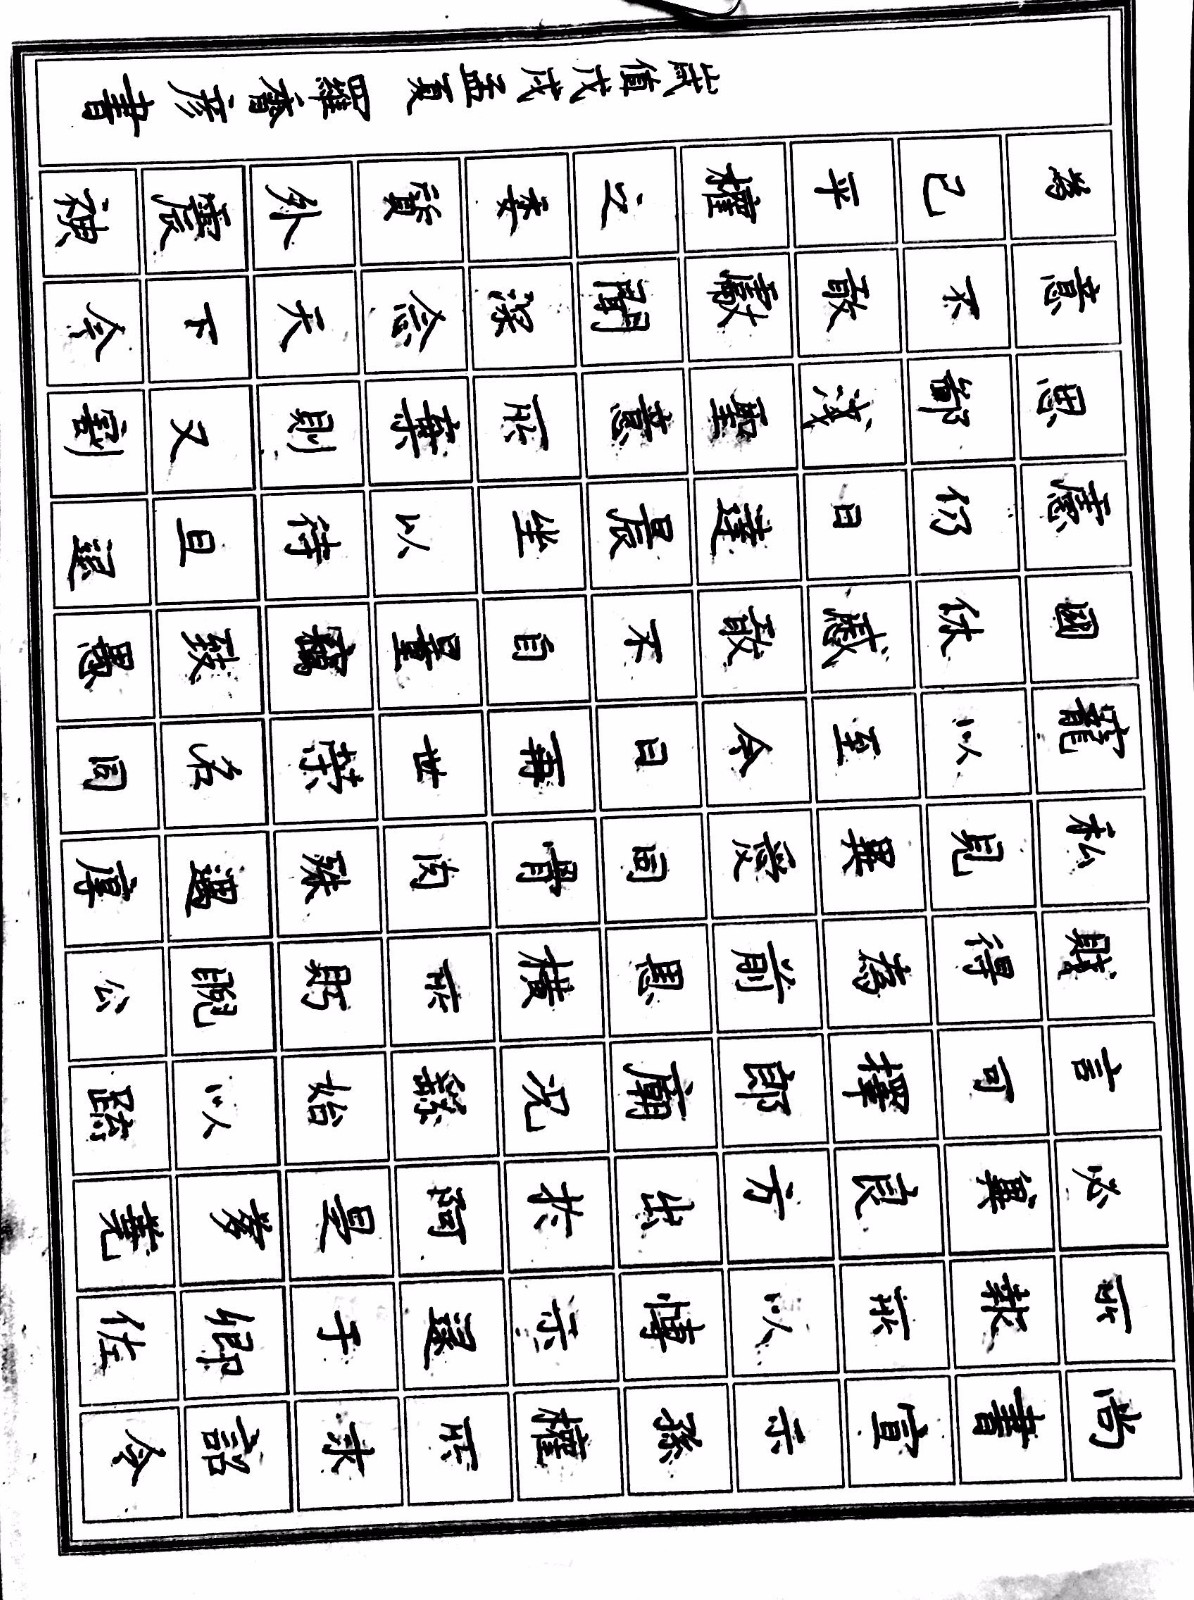 尚書宣示孫權所求詔令
所報所以博示逮于卿佐
必冀良方出於阿是芻蕘
言可擇郎廟況繇始以疏
賤得為前恩橫所眄睨公
私見異愛同骨肉殊遇厚
寵以至今日再世榮名同
國休慼敢不自量竊致愚
慮仍日達晨坐以待旦退
思鄙淺聖意所棄則又割
意不敢獻聞深念天下今
為已平權之委質外震神
歲值戊戌孟夏 羅齋彥書